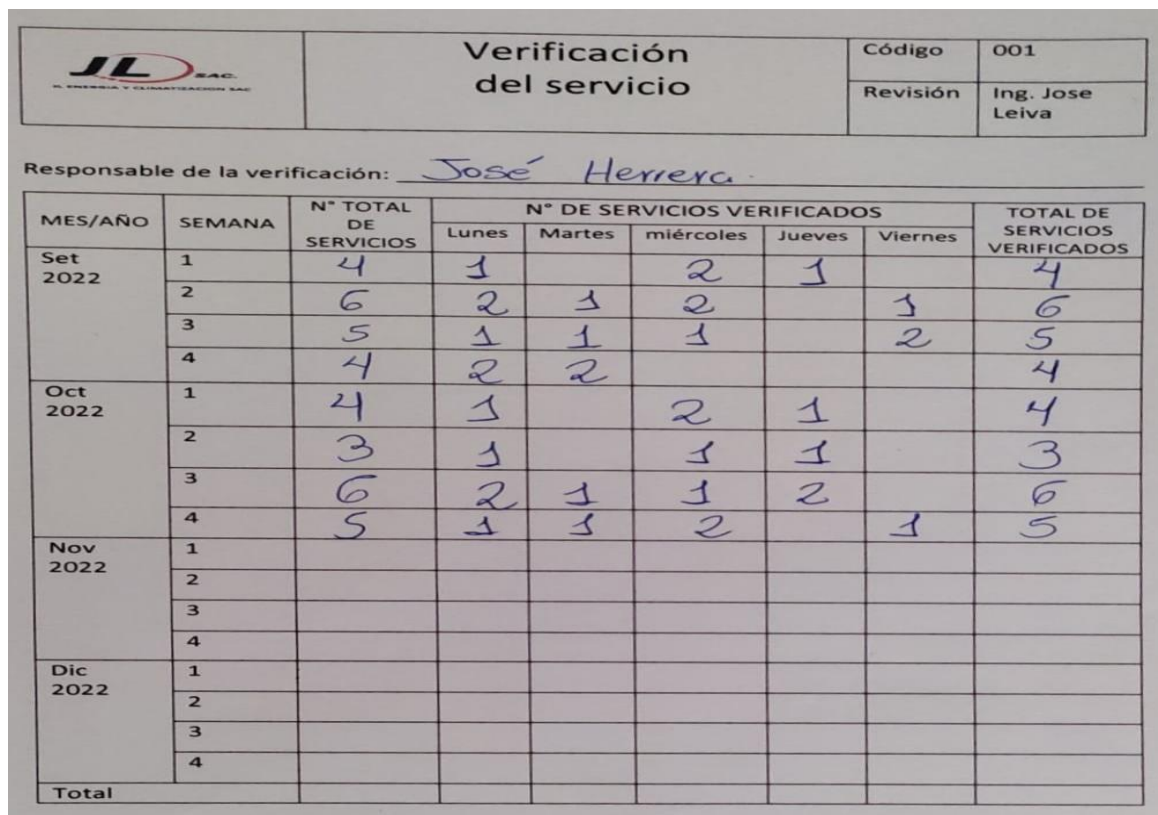 JL SAC.
JL ENERGIA Y CLIMATIZACION SAC
Verificación
del servicio
Código 001
Revisión Ing. Jose
Leiva
Responsable de la verificación: José Herrera.
MES/AÑO SEMANA N° TOTAL DE SERVICIOS N° DE SERVICIOS VERIFICADOS TOTAL DE SERVICIOS VERIFICADOS
Lunes Martes miércoles Jueves Viernes
Set 2022 1 4 1 2 1 4
2 6 2 1 2 1 6
3 5 1 1 1 2 5
4 4 2 2 4
Oct 2022 1 4 1 2 1 4
2 3 1 1 1 3
3 6 2 1 1 2 6
4 5 1 1 2 1 5
Nov 2022 1
2
3
4
Dic 2022 1
2
3
4
Total